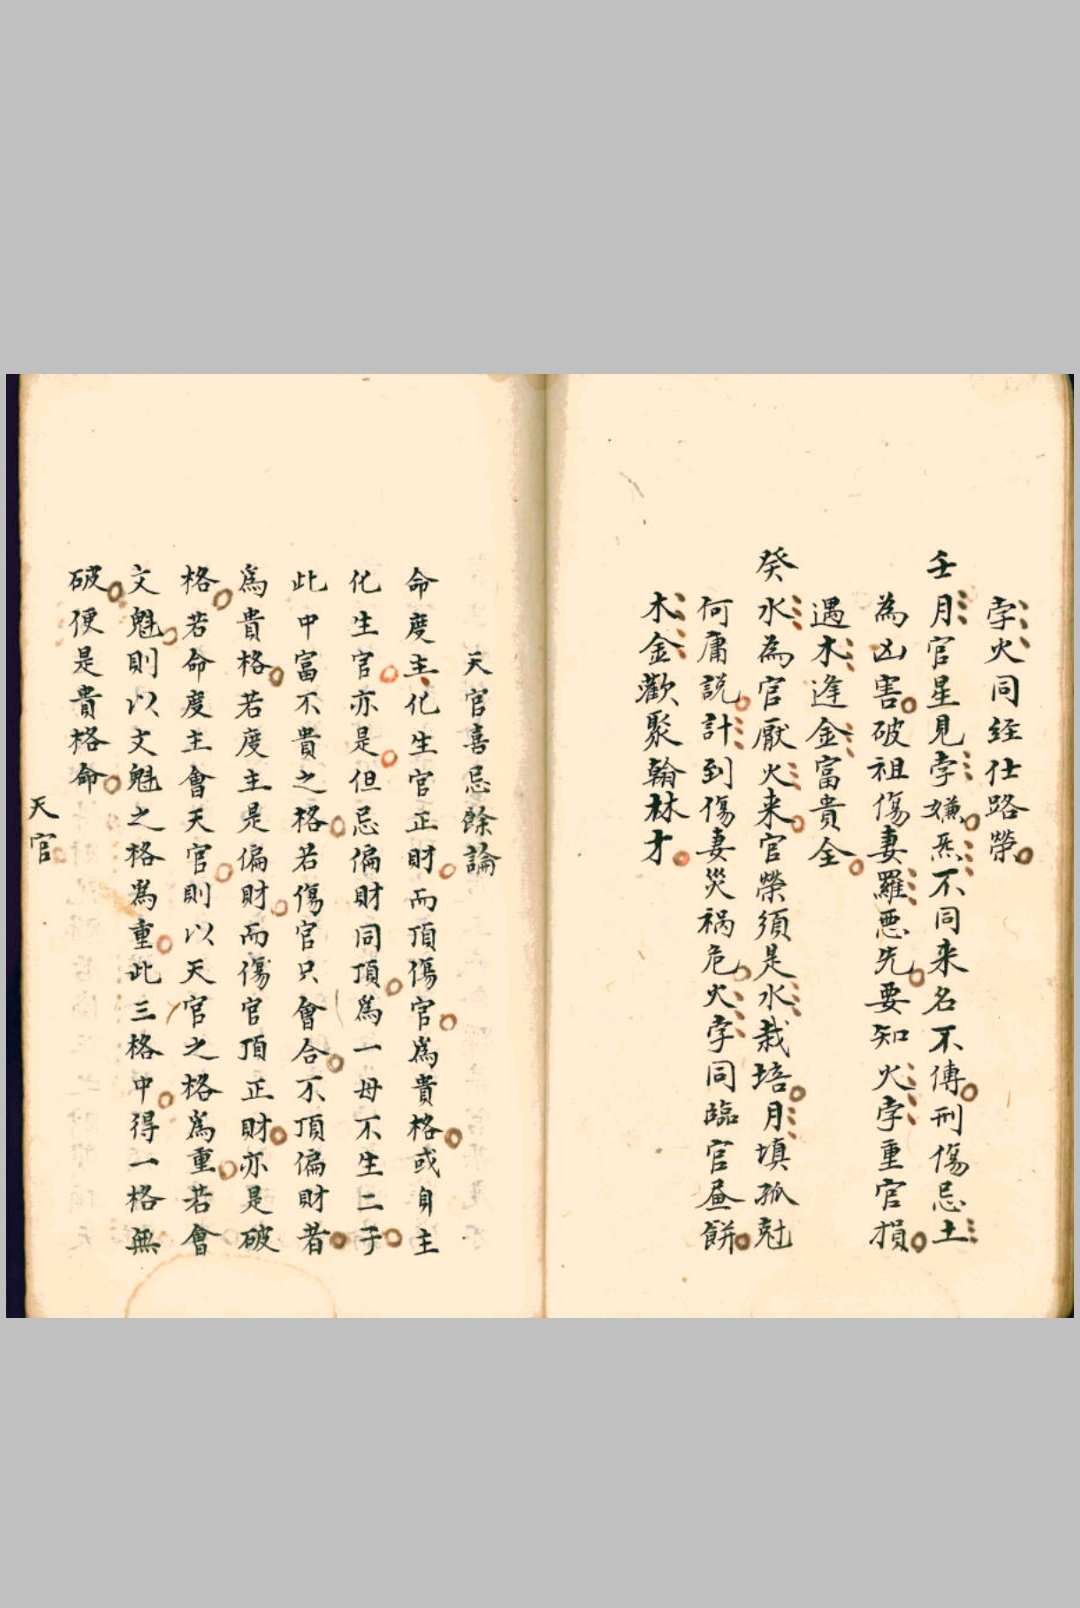 孛火同經仕路榮
壬月官星見孛嫌炁不同来名不傳刑傷忌土
為凶害破祖傷妻羅惡先要知火孛重官損
遇木逢金富貴全
癸水為官厭火来官榮須是水栽培月填孤尅
何庸說計到傷妻災祸危火孛同臨官昼餅
木金歡聚翰林才
天官喜忌餘論
命度主化生官正財而頂傷官爲貴格或自主
化生官亦是但忌偏財同頂爲一母不生二子
此中富不貴之格若傷官只會合不頂偏財者
爲貴格若度主是偏財而傷官頂正財亦是破
格若命度主會天官則以天官之格爲重若會
文魁則以文魁之格爲重此三格中得一格無
破便是貴格命
天官